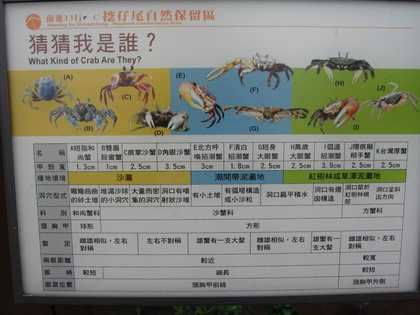 前進13行 C 挖仔尾自然保留區
猜猜我是誰？
What Kind of Crab Are They?
(A)
(B)
(C)
(D)
(E)
(F)
(G)
(H)
(I)
(J)
(K)
名稱 A短指和尚蟹 B雙扇股窗蟹 C痕掌沙蟹 D角眼沙蟹 E北方呼喚招潮蟹 F清白招潮蟹 G短身大眼蟹 H萬歲大眼蟹 I弧邊招潮蟹 J隆背張口蟹 K台灣厚蟹
甲殼寬 1.3cm 1cm 2.5cm 3.5cm 3cm 1.8cm 2.5cm 2.5cm 3.9cm 2.5cm 2.5cm
棲地環境 沙灘 潮間帶泥灘地 紅樹林或草澤泥灘地
洞穴型式 彎彎曲曲的砂土堆 堆滿沙球的小洞穴 大量而密集的洞穴 洞口有噴射狀沙堆 有小土堆 有弧塔構造或小沙粒 洞口扁平積水
科別 和尚蟹科 沙蟹科 方蟹科
頭胸甲 球形 方形
螯足 雌雄相似，左右對稱 左右不對稱 雄蟹有一支大螯 雌雄相似，左右對稱 雄蟹有一支大螯 雌雄相似，左右對稱
兩眼距離 較近 較寬
眼柄 較短 細長 較短
眼窩位置 頭胸甲前緣 頭胸甲外側